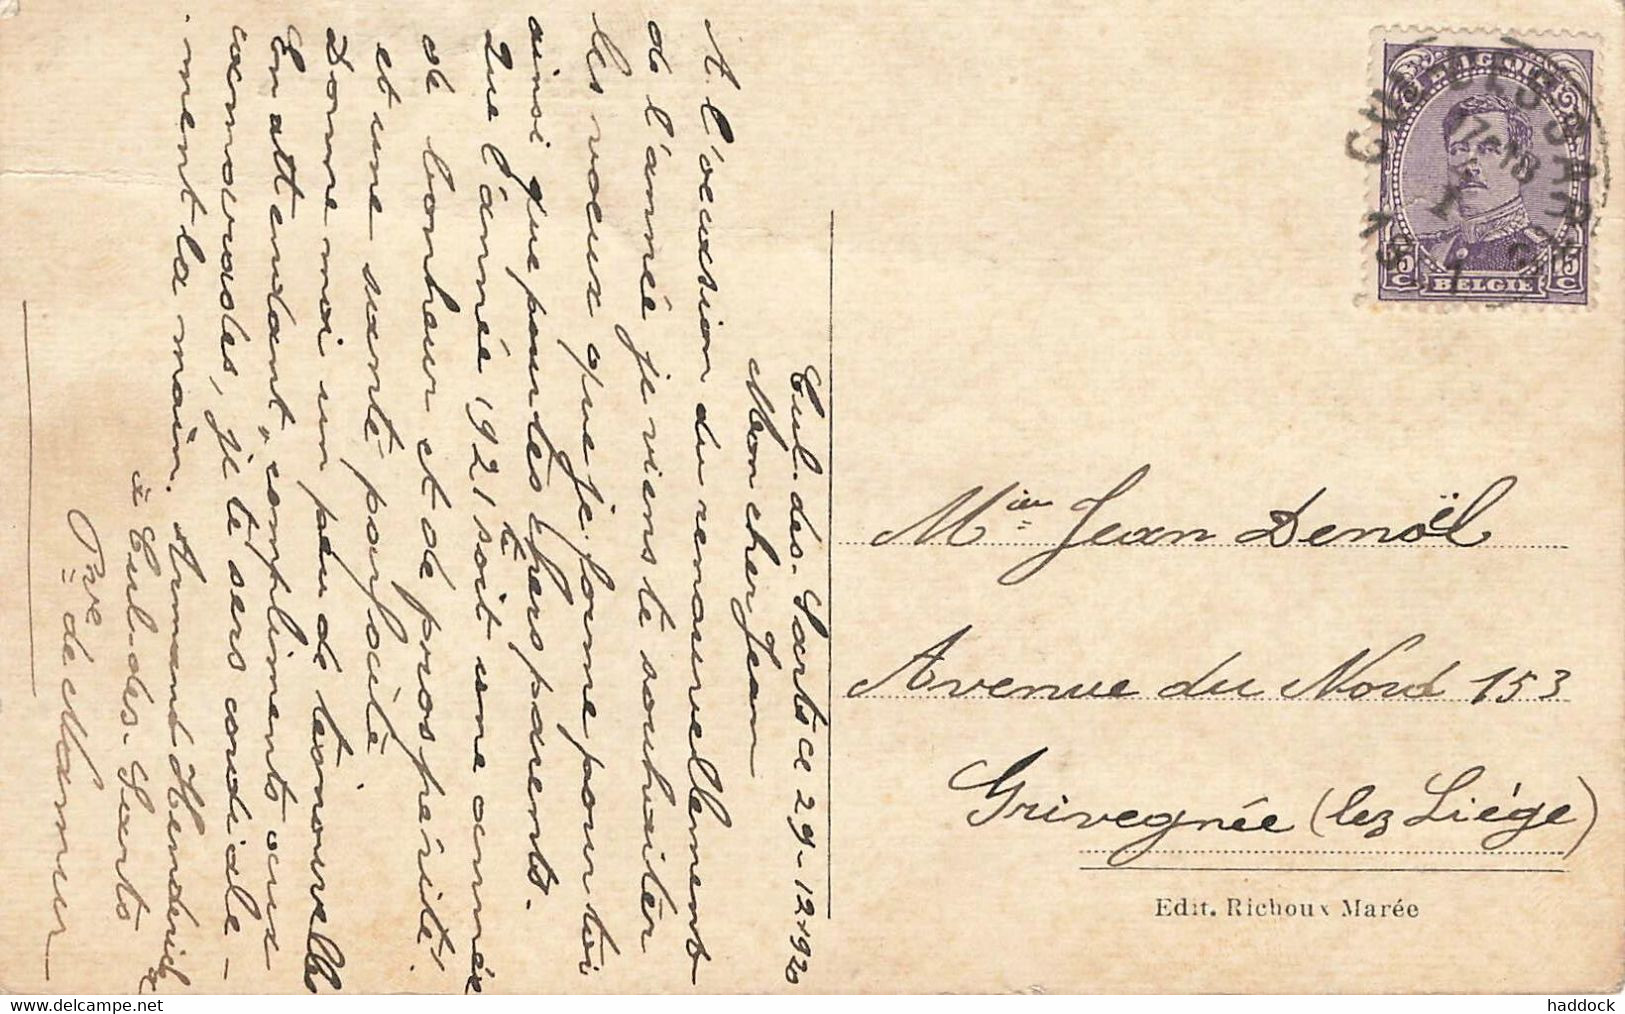 Cul-des-Sarts ce 29-12-1920
Mon cher Jean
A l'occasion du renouvellement
de l'année je viens te souhaiter
les vœux que je forme pour toi
ainsi que pour tes chers parents.
Que l'année 1921 soit une année
de bonheur et de prospérité.
et une santé parfaite
Donne moi un peu de tes nouvelle
En attendant, compliments aux
camarades, je te sers cordiale-
ment la main. Armand Hendrick
à Cul-des-Sarts
Pnce de Namur
BELGIQUE
CUL-DES-SARTS
17-18
15 C BELGIE 15 C
Mr Jean Denoël
Avenue du Nord 153
Grivegnée (lez Liége)
Edit. Richoux Marée
delcampe.net
haddock